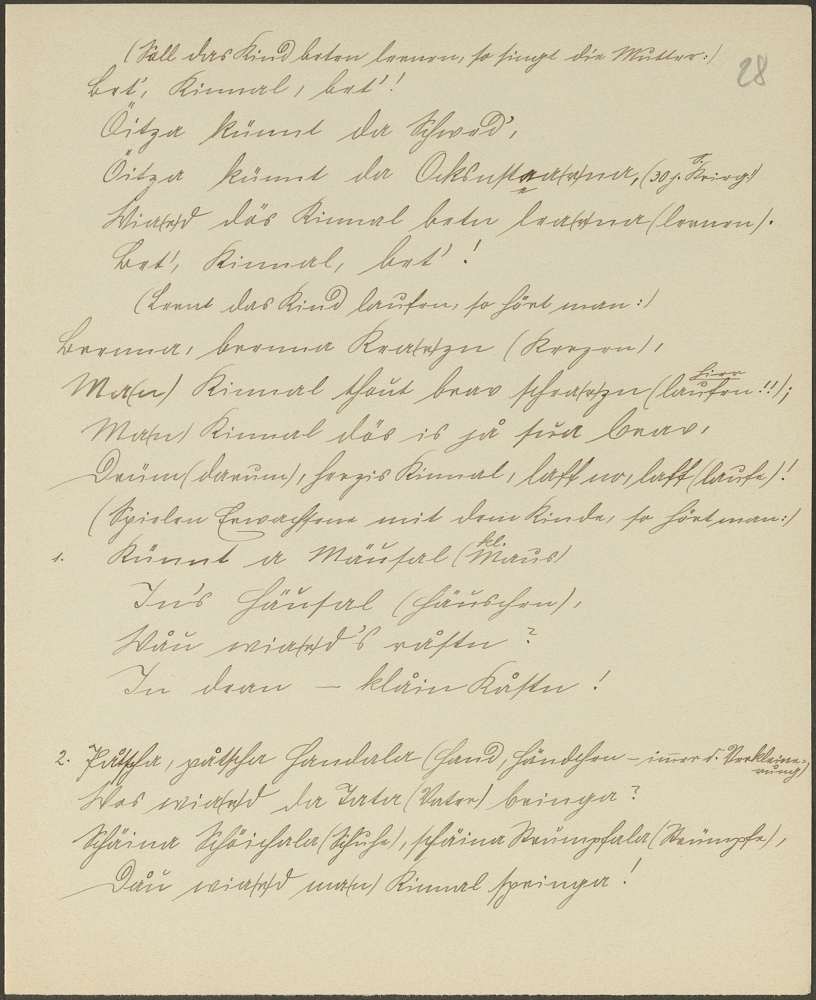 28
(Soll das Kind beten lernen, so singt die Mutter:)
Bet', Kinnal, bet'!
Öitza künnt da Schwed',
Öitza künnt da Ocksnstaa(r)na, (30 j. Krieg!)
Wia(r)d dös Kinnal betn lea(r)na (lernen).
Bet', Kinnal, bet'!
(Lernt das Kind laufen, so hört man:)
Brenna, brenna Kea(r)zn (Kerzen),
Ma(n) Kinnal thout brav schea(r)zn (laufen hier!!);
Ma(n) Kinnal dös is jå sua brav,
Drüm (darum), herzis Kinnal, laff no, laff (laufe)!
(Spielen Erwachsene mit dem Kinde, so hört man:)
1. Künnt a Mäusal (kl. Maus)
In's Häusal (Häuschen),
Wåu wia(r)d's råstn?
In dean — klåin Kåstn!
2. Påtscha, påtscha Handala (Hand, Händchen – immer d. Verkleinerung)
Wos wia(r)d da Tata (Vater) bringa?
Schäina Schöichala (Schuhe), schäina Strümpfala (Strümpfe),
Dåu wia(r)d ma(n) Kinnal springa!